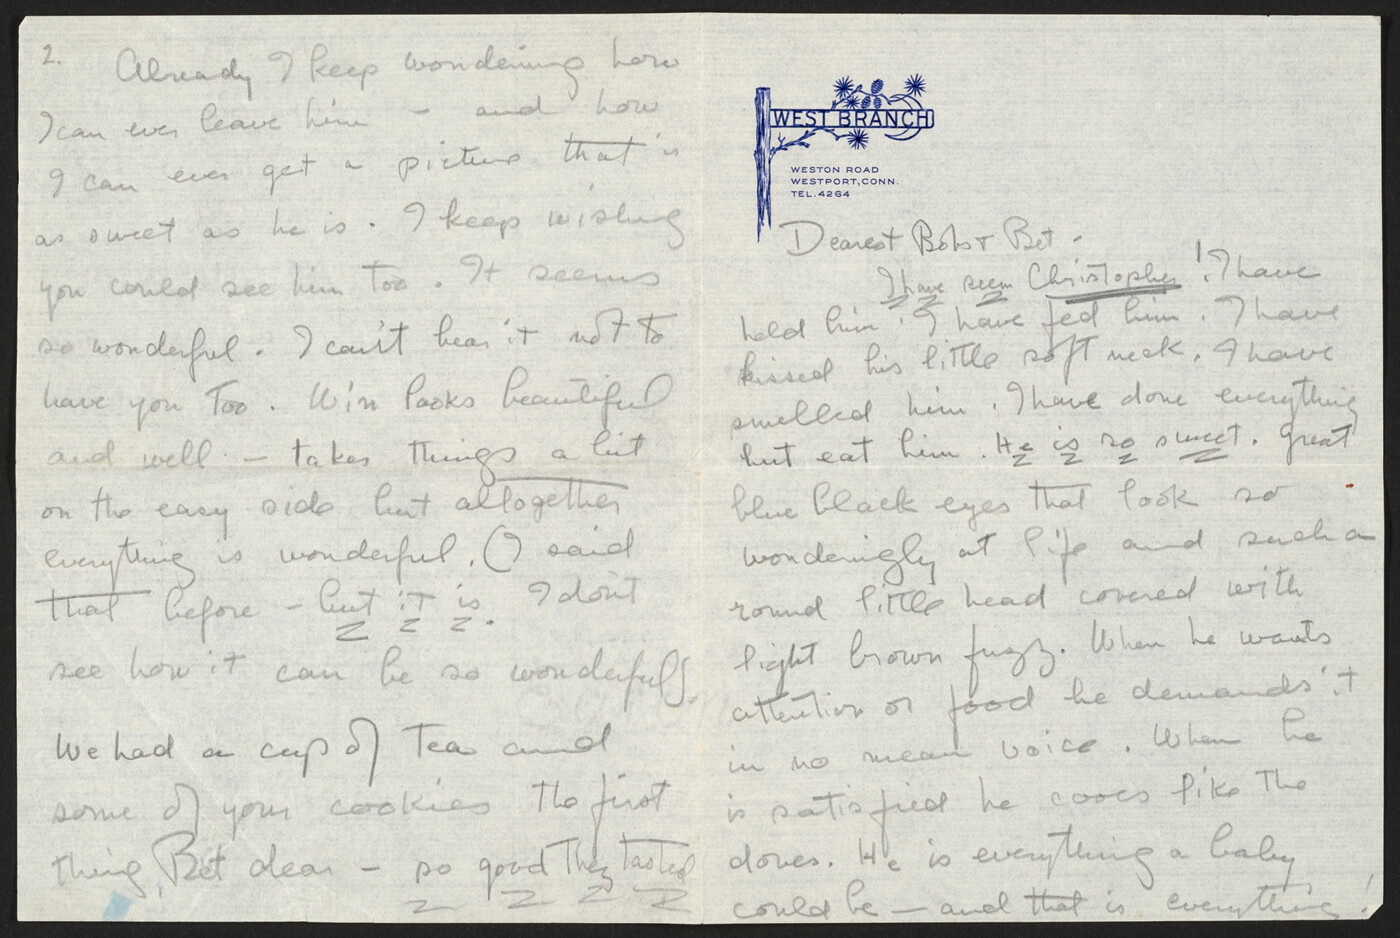 WEST BRANCH
WESTON ROAD
WESTPORT, CONN.
TEL. 4264
Dearest Bobs + Bet -
I have seen Christopher! I have
held him. I have fed him. I have
kissed his little soft neck. I have
smelled him. I have done everything
but eat him. He is so sweet. Great
blue black eyes that look so
wonderingly at life and such a
round little head covered with
light brown fuzz. When he wants
attention or food he demands it
in no mean voice. When he
is satisfied he cooes like the
doves. He is everything a baby
could be — and that is everything!
2.
Already I keep wondering how
I can ever leave him — and how
I can ever get a picture that is
as sweet as he is. I keep wishing
you could see him too. It seems
so wonderful. I can't bear it not to
have you too. Win looks beautiful
and well — takes things a bit
on the easy side but altogether
everything is wonderful. (I said
that before — but it is. I don't
see how it can be so wonderful).
We had a cup of tea and
some of your cookies the first
thing, Bet dear — so good they tasted